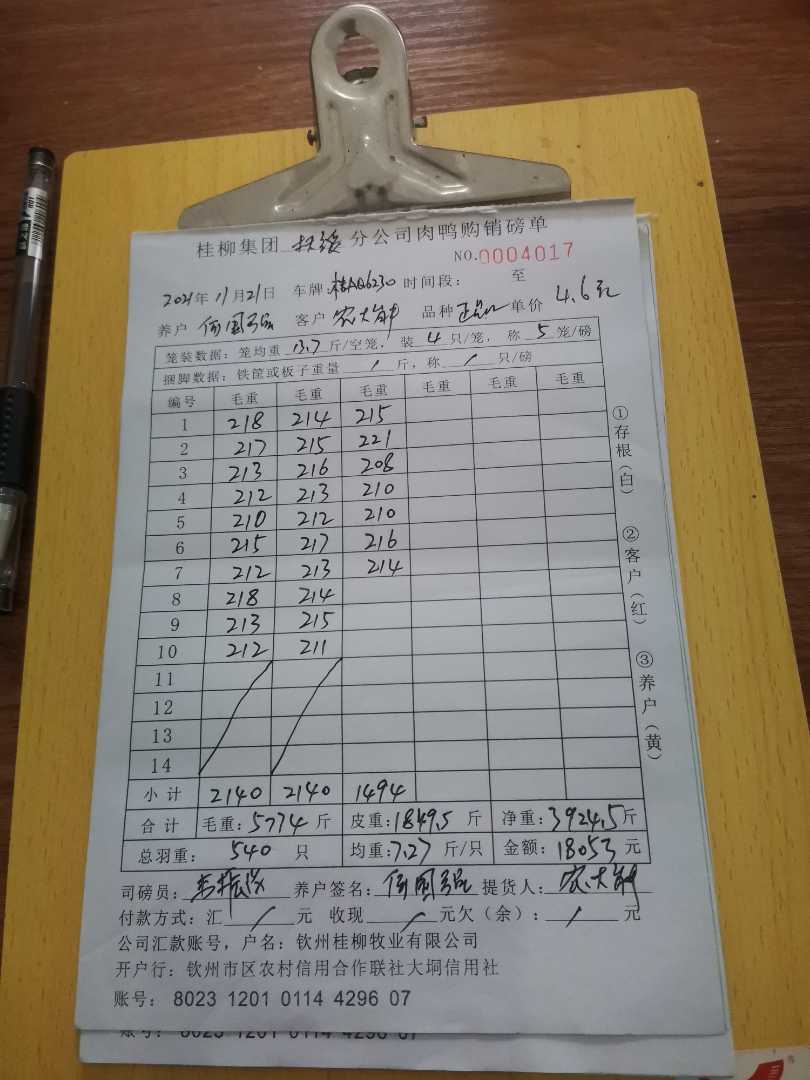 桂柳集团 扶绥 分公司肉鸭购销磅单
NO.0004017
2021年11月21日 车牌:桂AQ6230 时间段: 至
养户 客户 农大 品种 单价 4.6元
笼装数据:笼均重 13.7 斤/空笼, 装 4 只/笼, 称 5 笼/磅
捆脚数据:铁筐或板子重量 / 斤,称 / 只/磅
编号 毛重 毛重 毛重 毛重 毛重 毛重
1 218 214 215
2 217 215 221
3 213 216 208
4 212 213 210
5 210 212 210
6 215 217 216
7 212 213 214
8 218 214
9 213 215
10 212 211
11
12
13
14
小计 2140 2140 1494
合计 毛重:5774 斤 皮重:1849.5 斤 净重:3924.5斤
总羽重: 540 只 均重:7.27 斤/只 金额:18053 元
司磅员: 养户签名: 提货人:农大
付款方式:汇 / 元 收现 / 元欠(余): / 元
公司汇款账号,户名:钦州桂柳牧业有限公司
开户行:钦州市区农村信用合作联社大垌信用社
账号: 8023 1201 0114 4296 07
账号: 8023 1201 0114 4296 07
①存根(白)
②客户(红)
③养户(黄)